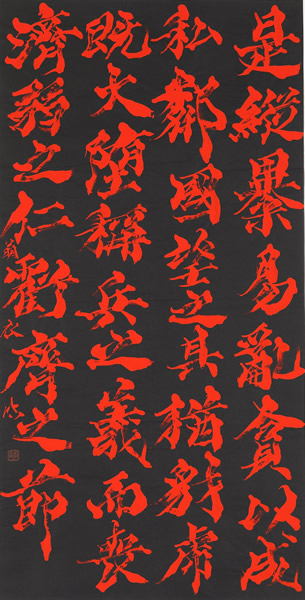 是縱暴易亂貪以成
私鄰國望之其猶豺虎
既大墮稱兵之義而喪
濟弱之仁虧齊之節